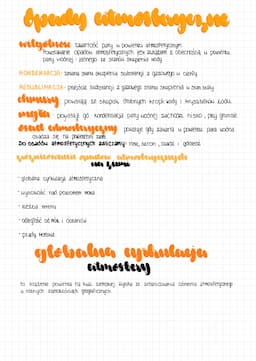 Opady atmosferyczne
wilgotność zawartość pary w powietrzu atmosferycznym
Powstawanie opadów atmosferycznych jest związane z obecnością w powietrzu
pary wodnej - jednego ze stanów skupienia wody
KONDENSACJA- zmiana stanu skupienia substancji z gazowego w ciekły
RESUBLIMACJA - przejście substancji z gazowego stanu skupienia w stan stały
chmury powstają ze skupisk drobnych kropli wody i kryształków lodu
mgła powstaje gdy kondensacja pary wodnej zachodzi nisko, przy gruncie
osad atmosferyczny powstaje gdy zawarta w powietrzu para wodna
osadza się na powierzchni ziemi
Do osadów atmosferycznych zaliczamy: rosę, szron, szadź i gołoledź
rozmieszczenie opadów atmosferycznych
na ziemi
- globalna cyrkulacja atmosferyczna
- wysokość nad poziomem morza
- rzeźba terenu
- odległość od mórz i oceanów
- prądy morskie
globalna cyrkulacja
atmosfery
to krążenie powietrza na kuli ziemskiej wynika ze zróżnicowania ciśnienia atmosferycznego
w różnych szerokościach geograficznych